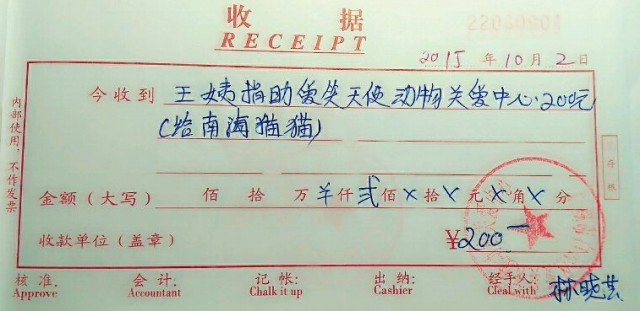 收据
RECEIPT
2015年10月2日
今收到 王姨捐助爱笑天使动物关爱中心.200元
(给南海猫猫)
金额(大写) 佰 拾 万 羊仟 贰佰 X拾 X元 X角 X分
收款单位(盖章) ¥200
核准: 会计: 记帐: 出纳: 经手人:
Approve Accountant Chalk it up Cashier Cleal with
内部使用,不作发票